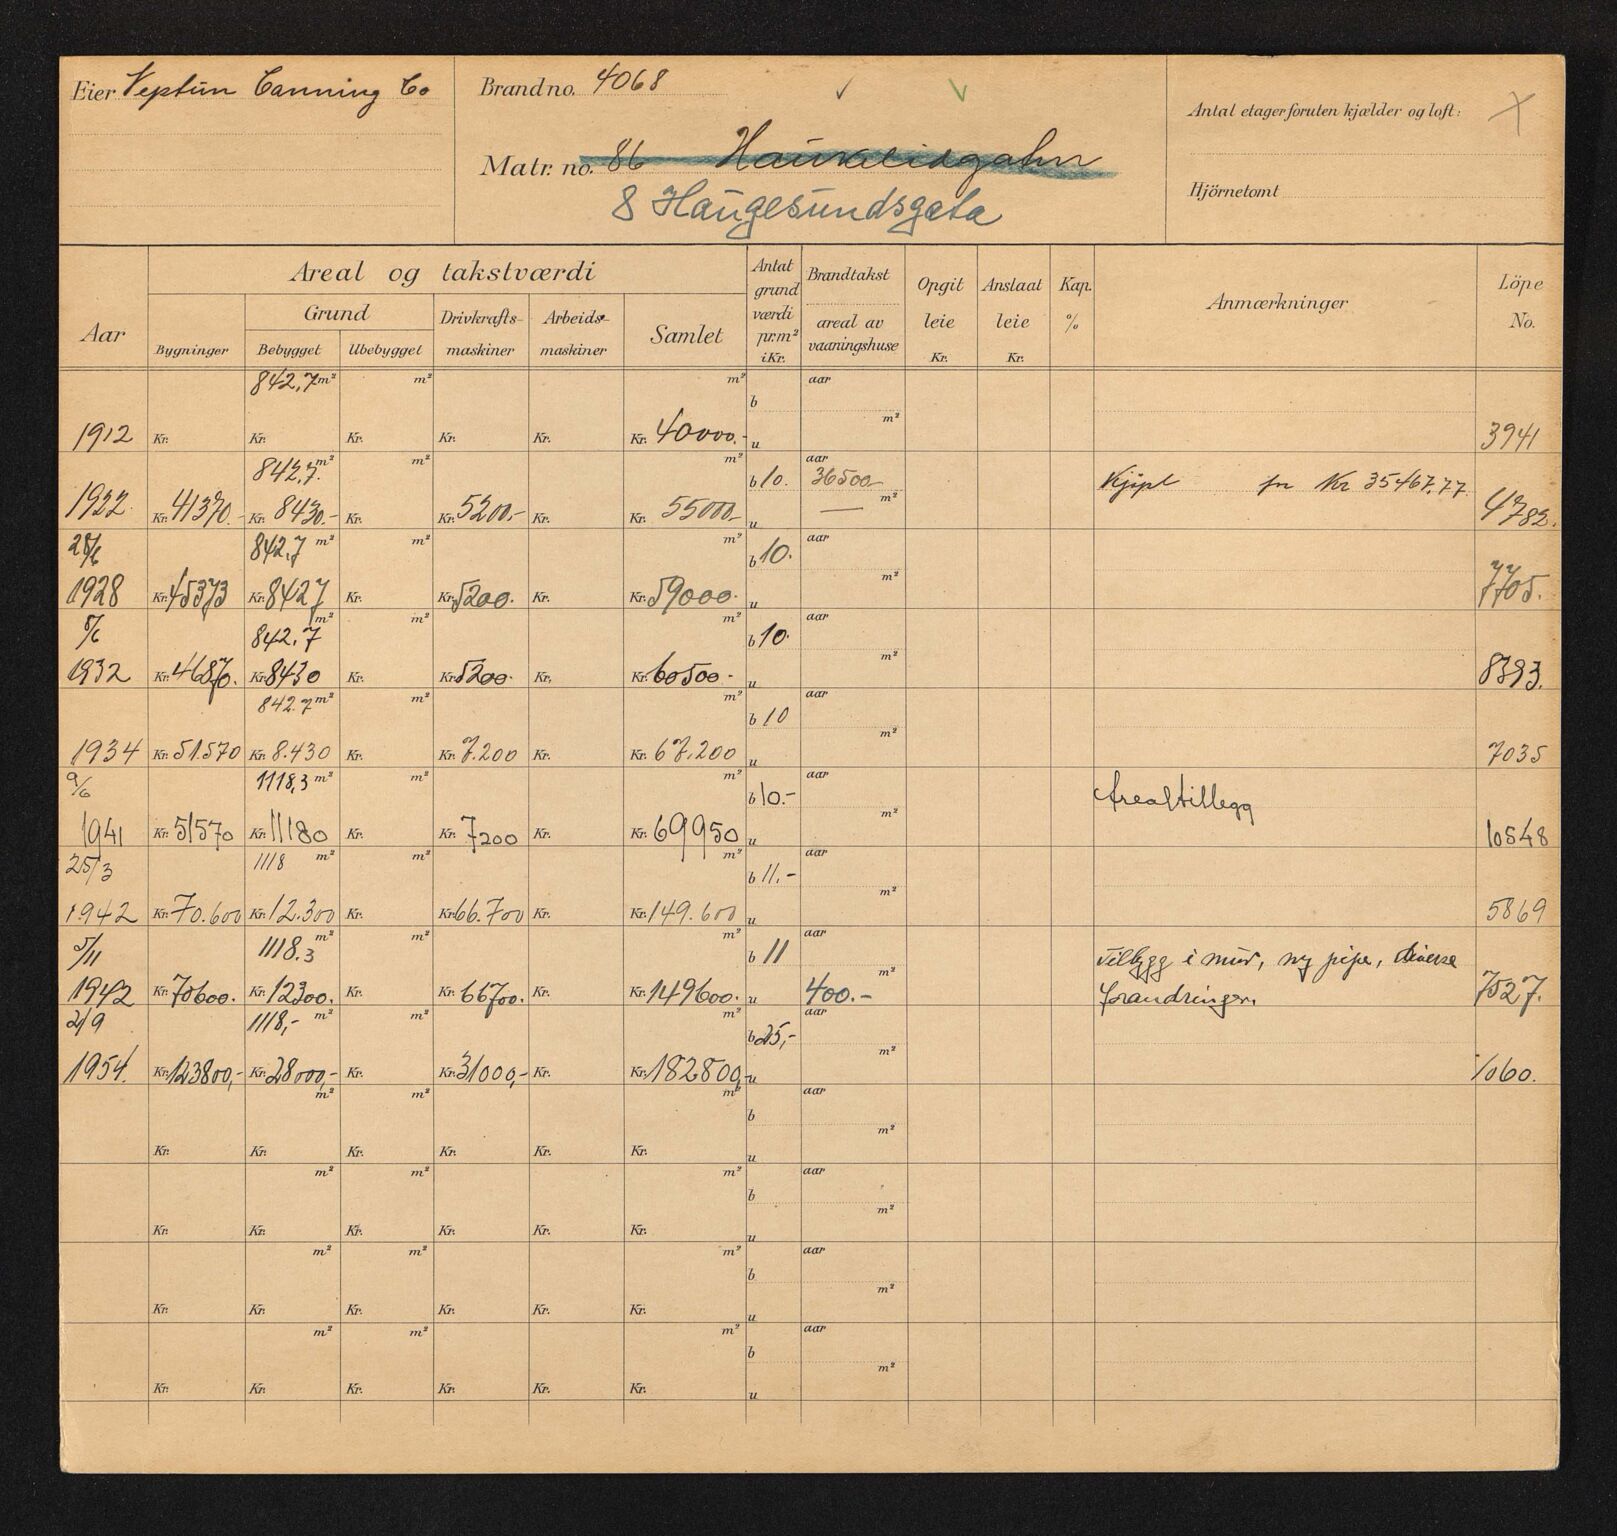 Eier Neptun Canning Co
Brandno. 4068
Antal etager foruten kjælder og loft:
Matr. no. 86 Haukelidgaten
Hjörnetomt
8 Haugesundsgata
Aar
Areal og takstværdi
Grund
Bygninger Bebygget Ubebygget Drivkrafts-maskiner Arbeids-maskiner Samlet
Antat grund værdi pr.m² i Kr.
Brandtakst
areal av vaaningshuse
Opgit leie Kr.
Anslaat leie Kr.
Kap. %
Anmærkninger
Löpe No.
842,7 m² m² m² aar
b m²
1912 Kr. Kr. Kr. Kr. Kr. Kr. 40000.- u 3941
842,7 m² m² m² aar
b 10. 36500 m² Kjöpt for Kr 35467,77
1922 Kr. 41370.- Kr. 8430.- Kr. Kr. 5200,- Kr. Kr. 55000,- u 4782.
842,7 m² m² m² aar
b 10. m²
1928 Kr. 45373 Kr. 8427 Kr. Kr. 5200. Kr. Kr. 59000. u 7705.
842,7 m² m² m² aar
b 10. m²
1932 Kr. 46870. Kr. 8430 Kr. Kr. 5200. Kr. Kr. 60500- u 8393.
842.7 m² m² m² aar
b 10 m²
1934 Kr. 51.570 Kr. 8.430 Kr. Kr. 7.200 Kr. Kr. 67.200 u 7035
9/6 1118,3 m² m² m² aar
b 10.- m² Arealtillegg
1941 Kr. 51570 Kr. 11180 Kr. Kr. 7200 Kr. Kr. 69950 u 10548
25/3 1118 m² m² m² aar
b 11.- m²
1942 Kr. 70.600 Kr. 12.300 Kr. Kr. 66.700 Kr. Kr. 149.600 u 5869
5/11 1118.3 m² m² m² aar
b 11 m² Tilbygg i mur, ny pipe, diverse
1942 Kr. 70600. Kr. 12300. Kr. Kr. 66700. Kr. Kr. 149600. u 400.- forandringer. 7527.
2/9 1118,- m² m² m² aar
b 25,- m²
1954. Kr. 123800,- Kr. 28000,- Kr. Kr. 31000,- Kr. Kr. 182800,- u 1060.
m² m² m² aar
b m²
Kr. Kr. Kr. Kr. Kr. Kr. u
m² m² m² aar
b m²
Kr. Kr. Kr. Kr. Kr. Kr. u
m² m² m² aar
b m²
Kr. Kr. Kr. Kr. Kr. Kr. u
m² m² m² aar
b m²
Kr. Kr. Kr. Kr. Kr. Kr. u